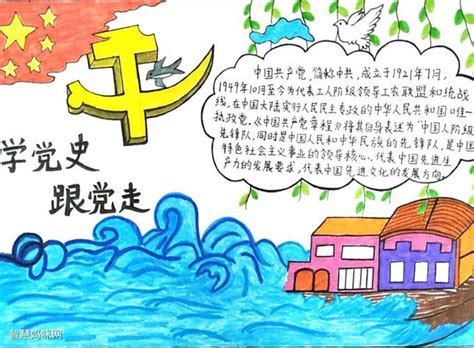 学党史
跟党走
中国共产党,简称中共,成立于1921年7月,
1949年10月至今为代表工人阶级领导工农联盟和统战
线,在中国大陆实行人民民主专政的中华人民共和国唯一
执政党。《中国共产党章程》将其自身表述为"中国工人阶级
先锋队,同时是中国人民和中华民族的先锋队,是中国
特色社会主义事业的领导核心,代表中国先进生
产力的发展要求,代表中国先进文化的发展方向。
智慧妈咪网